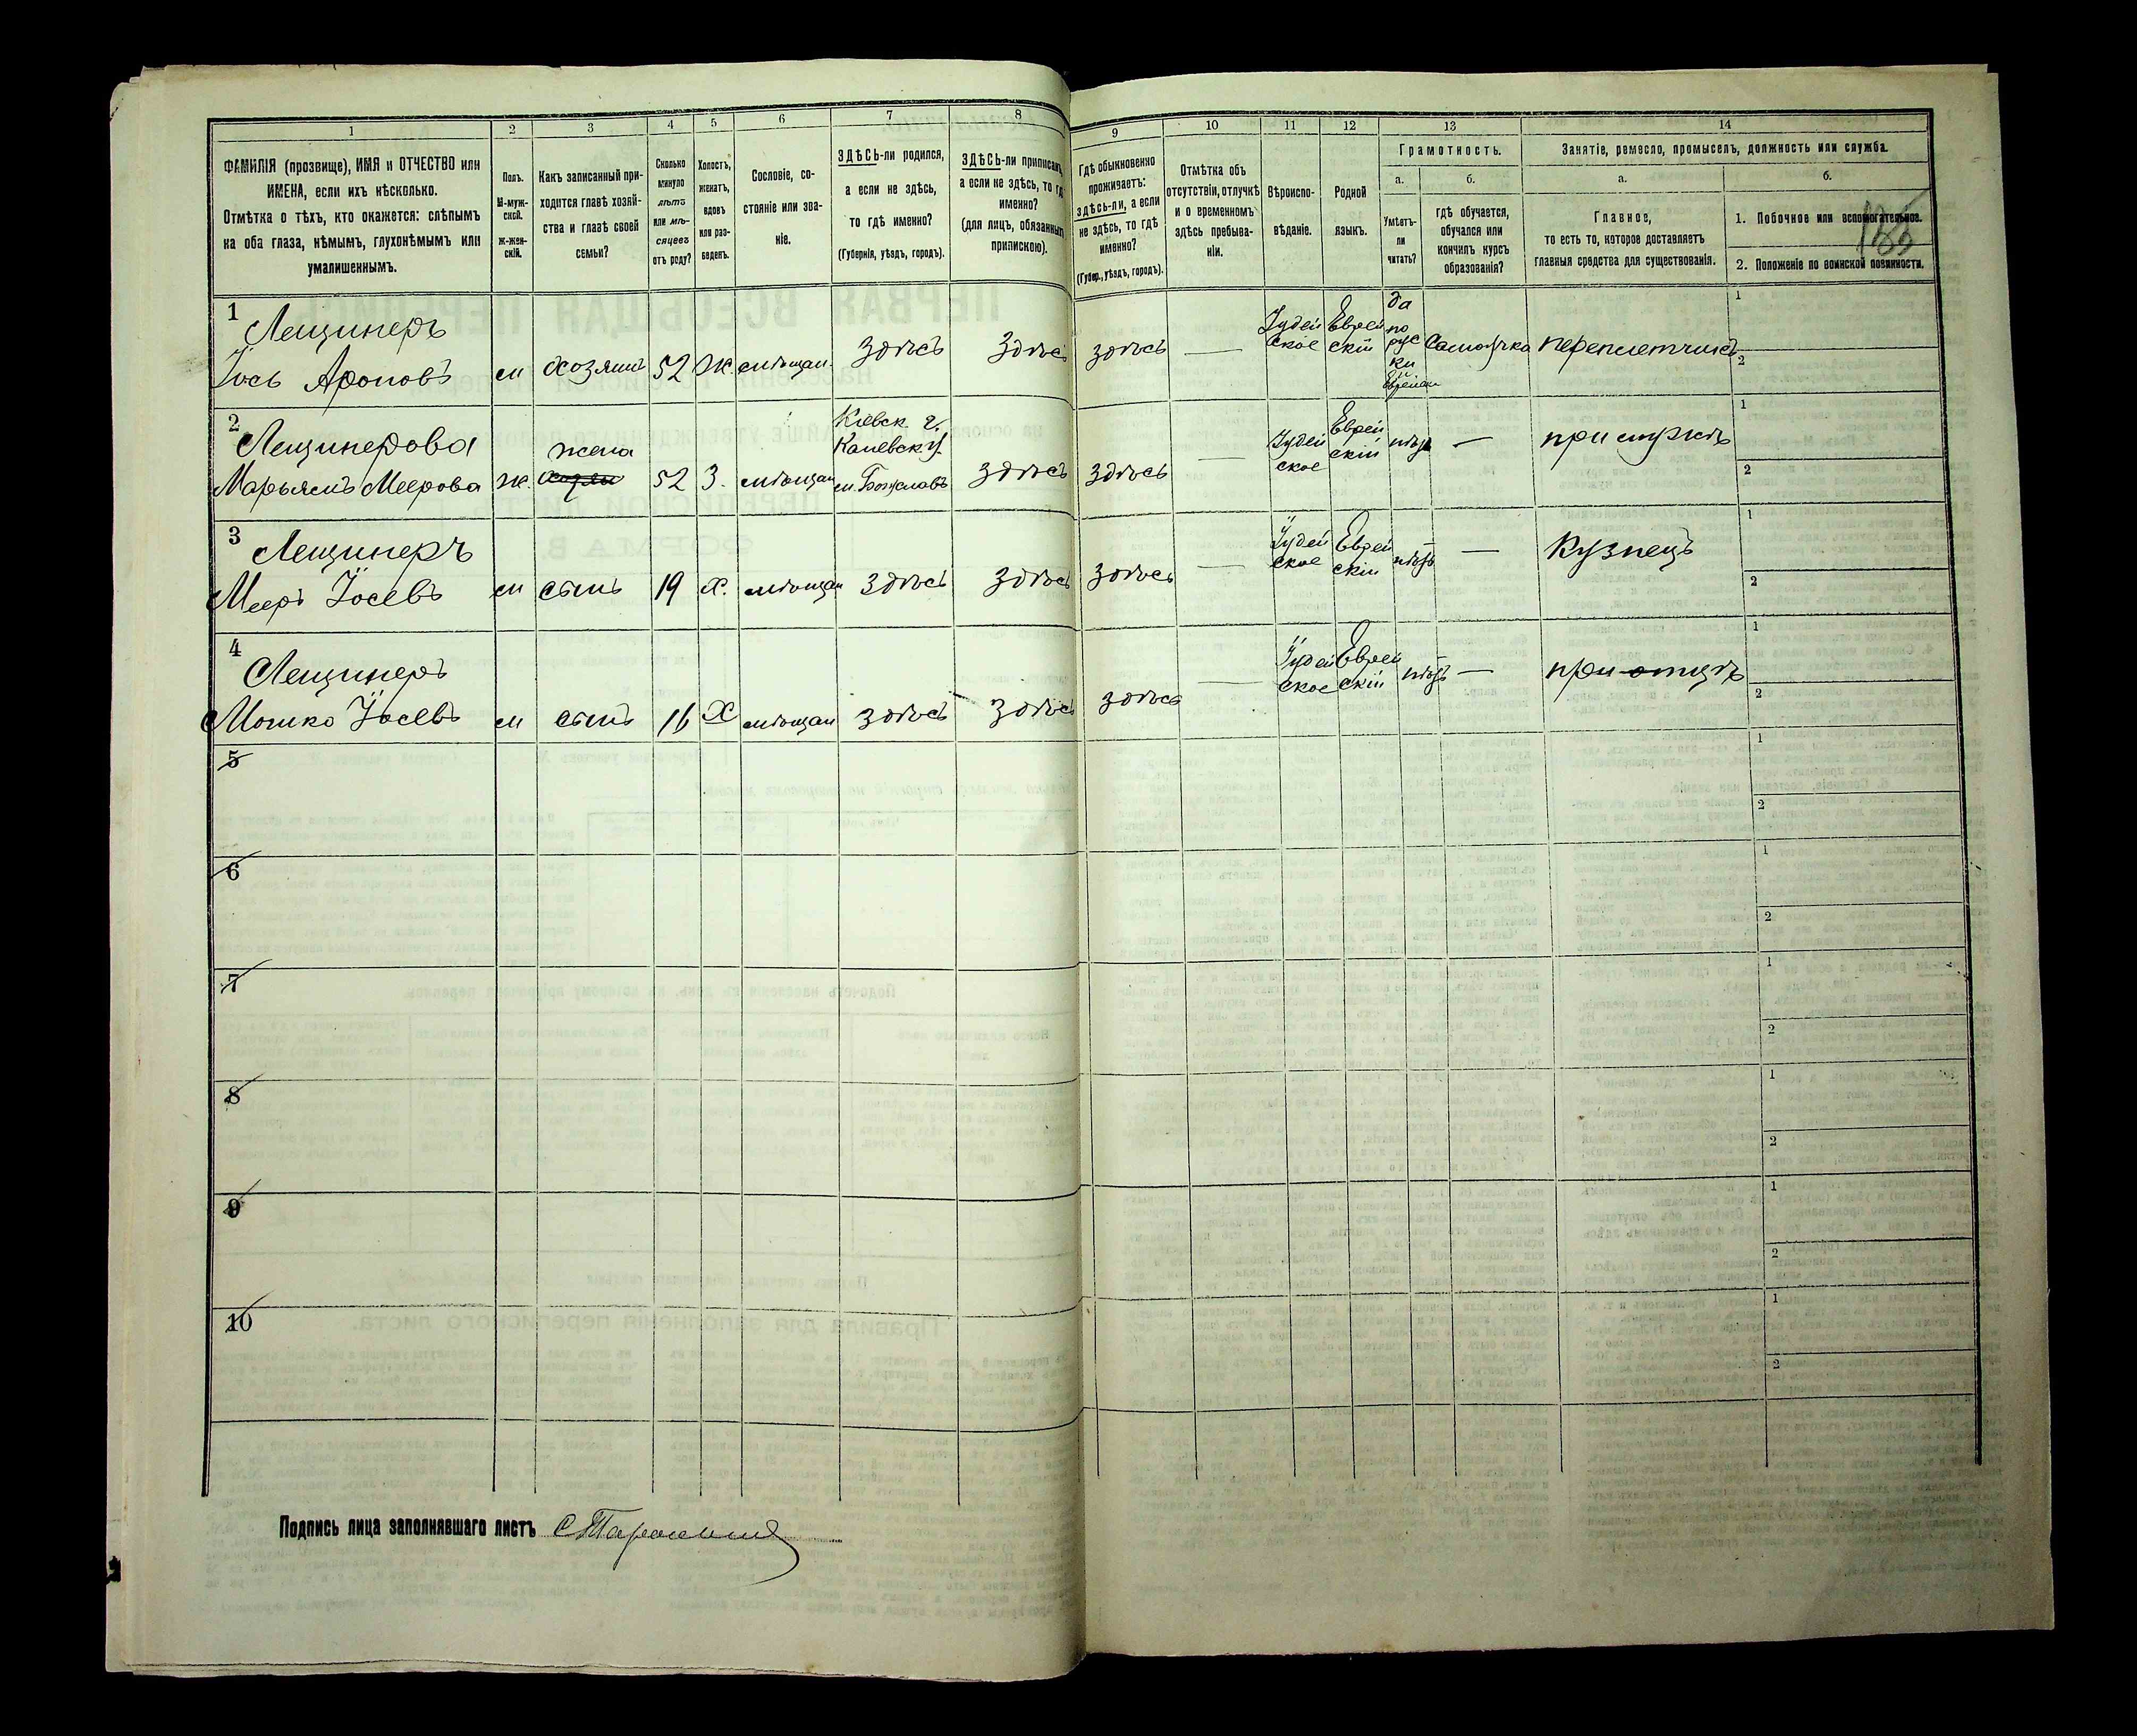 1 2 3 4 5 6 7 8 9 10 11 12 13 14
ФАМИЛІЯ (прозвище), ИМЯ и ОТЧЕСТВО или
ИМЕНА, если ихъ нѣсколько.
Отмѣтка о тѣхъ, кто окажется: слѣпымъ
на оба глаза, нѣмымъ, глухонѣмымъ или
умалишеннымъ.
Полъ.
М-муж-
ской.
Ж-жен-
скій.
Какъ записанный при-
ходится главѣ хозяй-
ства и главѣ своей
семьи?
Сколько
минуло
лѣтъ
или мѣ-
сяцевъ
отъ роду?
Холостъ,
женатъ,
вдовъ
или раз-
веденъ.
Сословіе, со-
стояніе или зва-
ніе.
ЗДѢСЬ-ли родился,
а если не здѣсь,
то гдѣ именно?
(Губернія, уѣздъ, городъ).
ЗДѢСЬ-ли приписанъ,
а если не здѣсь, то гдѣ
именно?
(для лицъ, обязанныхъ
припискою).
Гдѣ обыкновенно
проживаетъ:
здѣсь-ли, а если
не здѣсь, то гдѣ
именно?
(Губер., уѣздъ, городъ).
Отмѣтка объ
отсутствіи, отлучкѣ
и о временномъ
здѣсь пребыва-
ніи.
Вѣроиспо-
вѣданіе.
Родной
языкъ.
Грамотность.
а.
Умѣетъ-
ли
читать?
б.
гдѣ обучается,
обучался или
кончилъ курсъ
образованія?
Занятіе, ремесло, промыселъ, должность или служба.
а.
Главное,
то есть то, которое доставляетъ
главныя средства для существованія.
б.
1. Побочное или вспомогательное.
2. Положеніе по воинской повинности.
1 Лещинеръ
Іось Ароновъ м хозяинъ 52 ж. мѣщан. здѣсь здѣсь здѣсь — Іудей
ское Еврей
скій да
по
рус
ки Самоучка переплетчикъ 1
2
2 Лещинерова
Марьямъ Меерова ж. жена 52 З. мѣщан Кіевск г.
Каневск у.
м. Богуславъ здѣсь здѣсь — Іудей
ское Еврей
скій нѣтъ — при мужѣ 1
2
3 Лещинеръ
Мееръ Іосевъ м сынъ 19 х. мѣщан здѣсь здѣсь здѣсь — Іудей
ское Еврей
скій нѣтъ — Кузнецъ 1
2
4 Лещинеръ
Мошко Іосевъ м сынъ 16 Х мѣщан здѣсь здѣсь здѣсь — Іудей
ское Еврей
скій нѣтъ — при отцѣ 1
2
5 1
2
6 1
2
7 1
2
8 1
2
9 1
2
10 1
2
Подпись лица заполнявшаго листъ